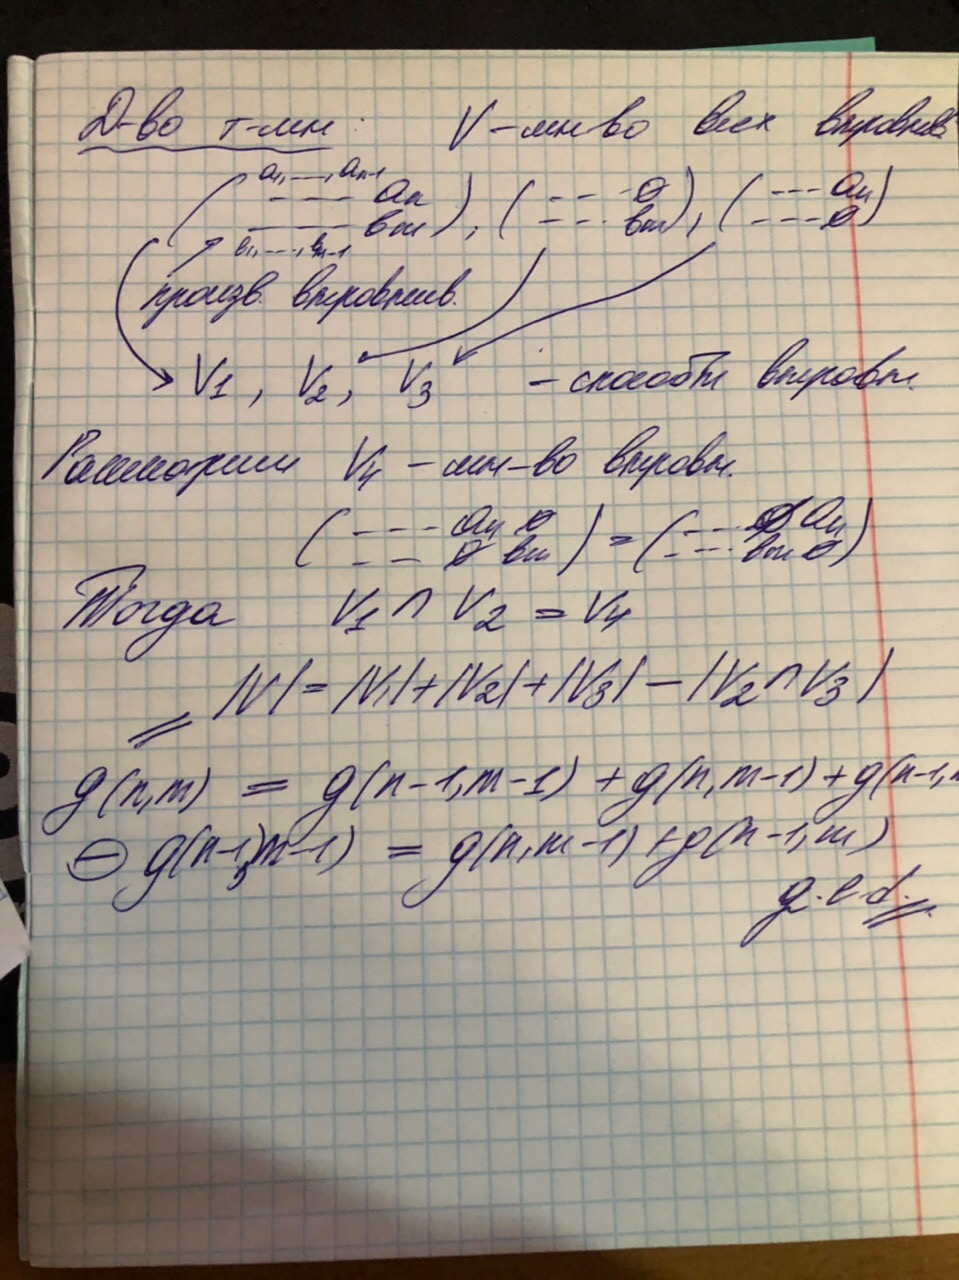 Д-во т-мн: V - мн-во всех выровнив
a₁, ..., aₙ₋₁
( ---- aₙ ), ( --- ∅ ), ( --- aₙ )
( ---- bₘ ), ( --- bₘ ), ( --- ∅ )
b₁, ..., bₘ₋₁
произв. выровнив.
V₁, V₂, V₃ - способы выровн.
Рассмотрим V₄ - мн-во выровн.
( --- aₙ ∅ ) = ( --- ∅ aₙ )
( -- ∅ bₘ ) = ( --- bₘ ∅ )
Тогда V₁ ∩ V₂ = V₄
|V| = |V₁| + |V₂| + |V₃| - |V₂ ∩ V₃|
g(n,m) = g(n-1, m-1) + g(n, m-1) + g(n-1,
⊖ g(n-1, m-1) = g(n, m-1) + g(n-1, m)
q.e.d.